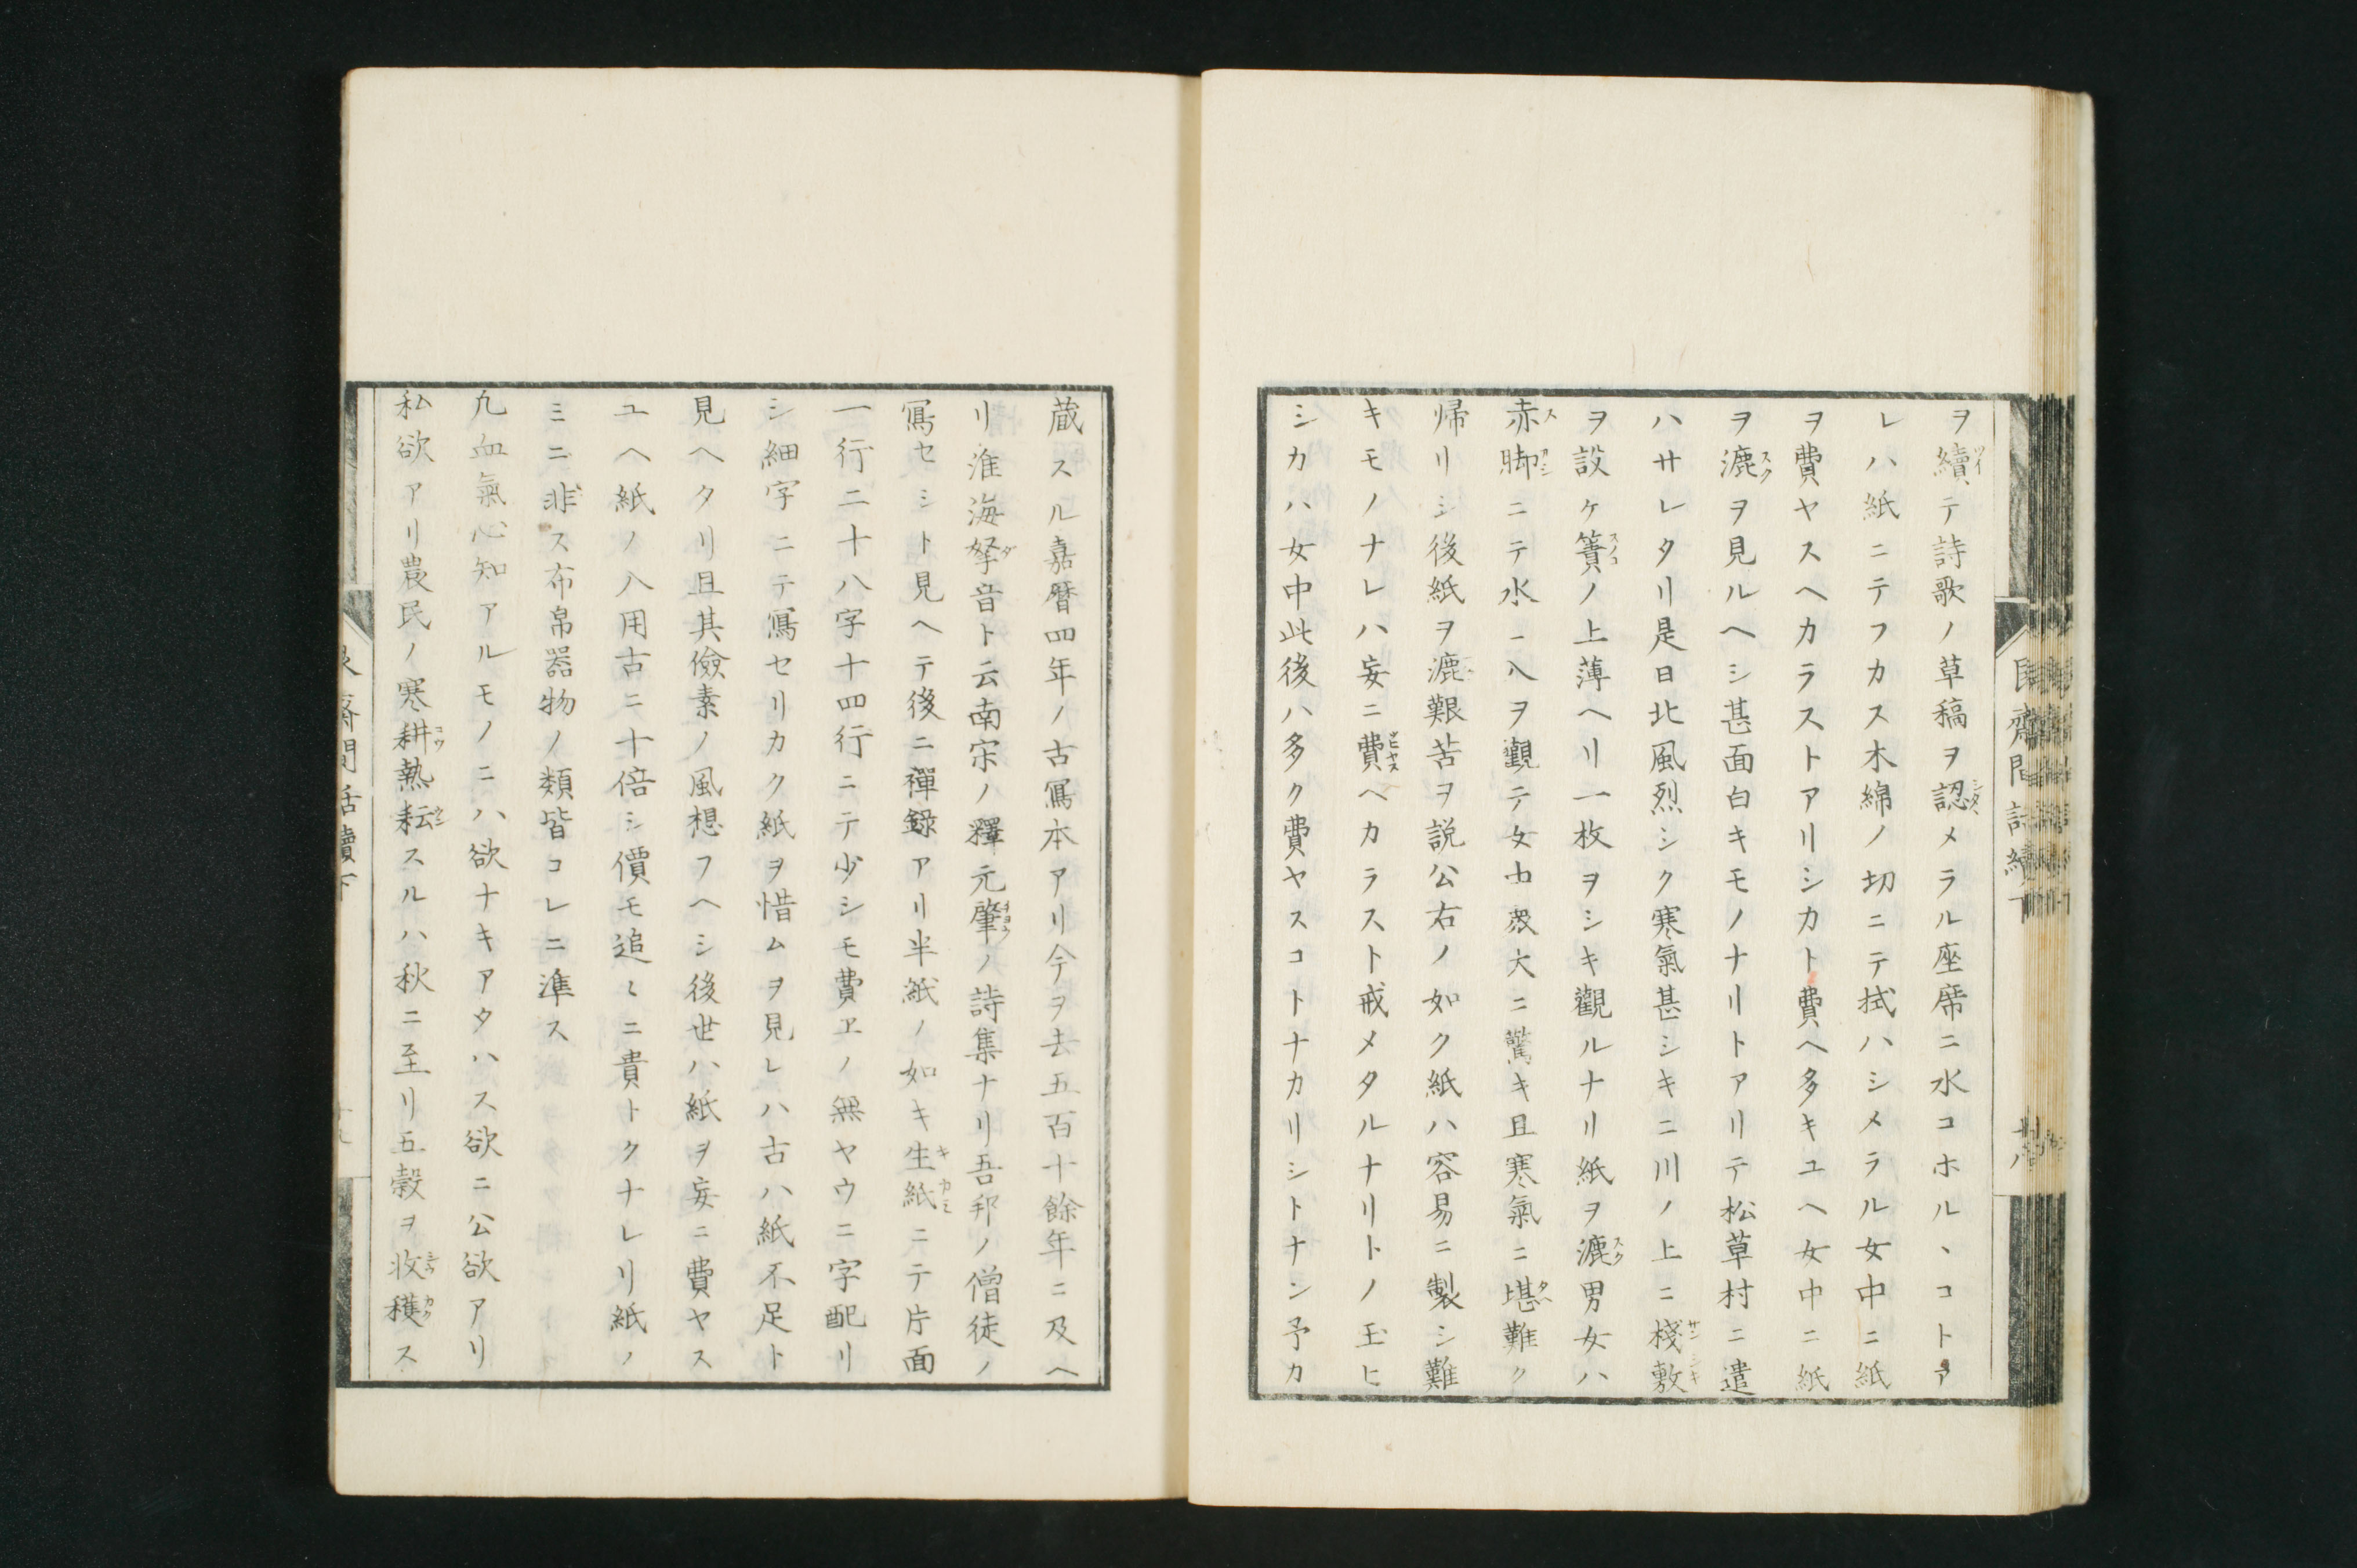 ヲ續テ詩歌ノ草稿ヲ認メラル座席ニ水コホルヽコトア
レハ紙ニテフカス木綿ノ切ニテ拭ハシメラル女中ニ紙
ヲ費ヤスヘカラストアリシカト費ヘ多キユヘ女中ニ紙
ヲ漉ヲ見ルヘシ甚面白キモノナリトアリテ松草村ニ遣
ハサレタリ是日北風烈シク寒氣甚シキニ川ノ上ニ棧敷
ヲ設ケ簀ノ上薄ヘリ一枚ヲシキ觀ルナリ紙ヲ漉男女ハ
赤脚ニテ水ニ入ヲ觀テ女中衆大ニ驚キ且寒氣ニ堪難ク
帰リシ後紙ヲ漉艱苦ヲ説公右ノ如ク紙ハ容易ニ製シ難
キモノナレハ妄ニ費ヘカラスト戒メタルナリトノ玉ヒ
シカハ女中此後ハ多ク費ヤスコトナカリシトナン予カ
蔵スル嘉暦四年ノ古寫本アリ今ヲ去五百十餘年ニ及ヘ
リ淮海拏音ト云南宋ノ釋元肇ノ詩集ナリ吾邦ノ僧徒ノ
寫セシト見ヘテ後ニ禪録アリ半紙ノ如キ生紙ニテ片面
一行二十八字十四行ニテ少シモ費ヱノ無ヤウニ字配リ
シ細字ニテ寫セリカク紙ヲ惜ムヲ見レハ古ハ紙不足ト
見ヘタリ且其儉素ノ風想フヘシ後世ハ紙ヲ妄ニ費ヤス
ユヘ紙ノ入用古ニ十倍シ價モ追〻ニ貴トクナレリ紙ノ
ミニ非ス布帛器物ノ類皆コレニ準ス
凢血氣心知アルモノニハ欲ナキアタハス欲ニ公欲アリ
私欲アリ農民ノ寒耕熱耘スルハ秋ニ至リ五穀ヲ收穫ス